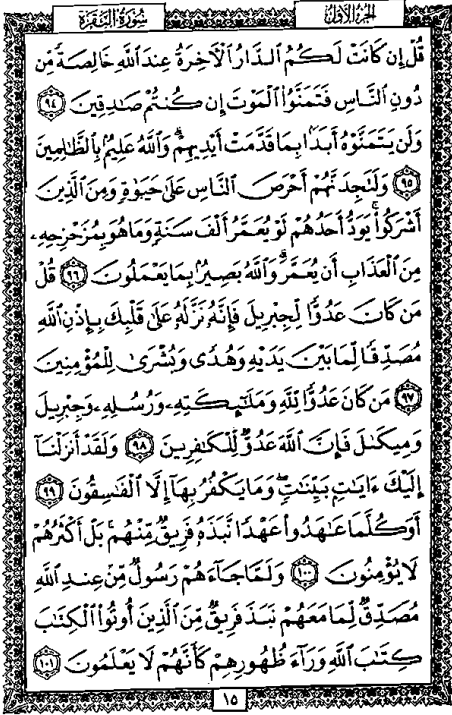 الجزء الأول
سورة البقرة
قُلْ إِن كَانَتْ لَكُمُ الدَّارُ الْآخِرَةُ عِندَ اللَّهِ خَالِصَةً مِّن
دُونِ النَّاسِ فَتَمَنَّوُا الْمَوْتَ إِن كُنتُمْ صَادِقِينَ ٩٤
وَلَن يَتَمَنَّوْهُ أَبَدًا بِمَا قَدَّمَتْ أَيْدِيهِمْ ۗ وَاللَّهُ عَلِيمٌ بِالظَّالِمِينَ
٩٥ وَلَتَجِدَنَّهُمْ أَحْرَصَ النَّاسِ عَلَىٰ حَيَوٰةٍ وَمِنَ الَّذِينَ
أَشْرَكُوا ۚ يَوَدُّ أَحَدُهُمْ لَوْ يُعَمَّرُ أَلْفَ سَنَةٍ وَمَا هُوَ بِمُزَحْزِحِهِۦ
مِنَ الْعَذَابِ أَن يُعَمَّرَ ۗ وَاللَّهُ بَصِيرٌ بِمَا يَعْمَلُونَ ٩٦ قُلْ
مَن كَانَ عَدُوًّا لِّجِبْرِيلَ فَإِنَّهُ نَزَّلَهُ عَلَىٰ قَلْبِكَ بِإِذْنِ اللَّهِ
مُصَدِّقًا لِّمَا بَيْنَ يَدَيْهِ وَهُدًى وَبُشْرَىٰ لِلْمُؤْمِنِينَ
٩٧ مَن كَانَ عَدُوًّا لِّلَّهِ وَمَلَٰٓئِكَتِهِۦ وَرُسُلِهِۦ وَجِبْرِيلَ
وَمِيكَىٰلَ فَإِنَّ اللَّهَ عَدُوٌّ لِّلْكَافِرِينَ ٩٨ وَلَقَدْ أَنزَلْنَآ
إِلَيْكَ ءَايَٰتٍ بَيِّنَٰتٍ ۖ وَمَا يَكْفُرُ بِهَآ إِلَّا الْفَاسِقُونَ ٩٩
أَوَكُلَّمَا عَٰهَدُوا عَهْدًا نَّبَذَهُ فَرِيقٌ مِّنْهُم ۚ بَلْ أَكْثَرُهُمْ
لَا يُؤْمِنُونَ ١٠٠ وَلَمَّا جَآءَهُمْ رَسُولٌ مِّنْ عِندِ اللَّهِ
مُصَدِّقٌ لِّمَا مَعَهُمْ نَبَذَ فَرِيقٌ مِّنَ الَّذِينَ أُوتُوا الْكِتَٰبَ
كِتَٰبَ اللَّهِ وَرَآءَ ظُهُورِهِمْ كَأَنَّهُمْ لَا يَعْلَمُونَ ١٠١
١٥